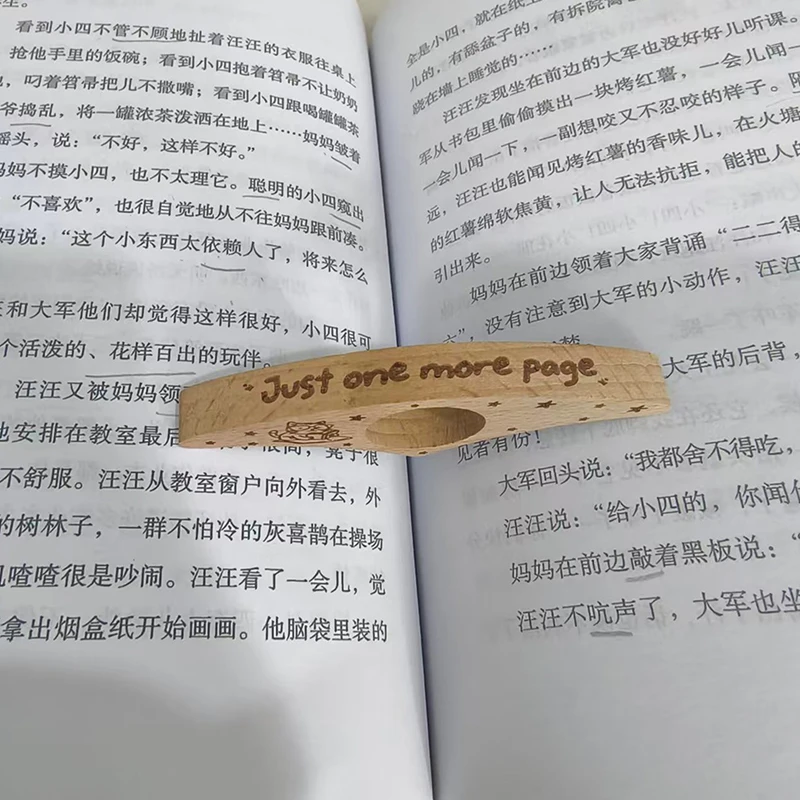 看到小四不管不顾地扯着汪汪的衣服往桌上
抢他手里的饭碗；看到小四抱着笤帚不让奶奶
，叼着笤帚把儿不撒嘴；看到小四跟喝罐罐茶
爷捣乱，将一罐浓茶泼洒在地上……妈妈皱着
摇头，说：“不好，这样不好。”
妈妈不摸小四，也不太理它。聪明的小四窥出
“不喜欢”，也很自觉地从不往妈妈跟前凑。
妈说：“这个小东西太依赖人了，将来怎么
汪和大军他们却觉得这样很好，小四很可
个活泼的、花样百出的玩伴。
汪汪又被妈妈领
地安排在教室最后
很高，凳子很
不舒服。汪汪从教室窗户向外看去，外
的树林子，一群不怕冷的灰喜鹊在操场
叽喳喳很是吵闹。汪汪看了一会儿，觉
拿出烟盒纸开始画画。他脑袋里装的
Just one more page
全是小四，就在纸上
儿的，有舔盆子的，有拆院篱
晓在墙上睡觉的……
汪汪发现坐在前边的大军也没好好儿听课。
军从书包里偷偷摸出一块烤红薯，一会儿闻一
一会儿闻一下，一副想咬又不忍咬的样子。
远，汪汪也能闻见烤红薯的香味儿，在火塘
的红薯绵软焦黄，让人无法抗拒，能把人的
引出来。
妈妈在前边领着大家背诵“二二得
六”，没有注意到大军的小动作，汪汪
大军的后背，
见者有份！
大军回头说：“我都舍不得吃，
汪汪说：“给小四的，你闻
妈妈在前边敲着黑板说：“
汪汪不吭声了，大军也坐